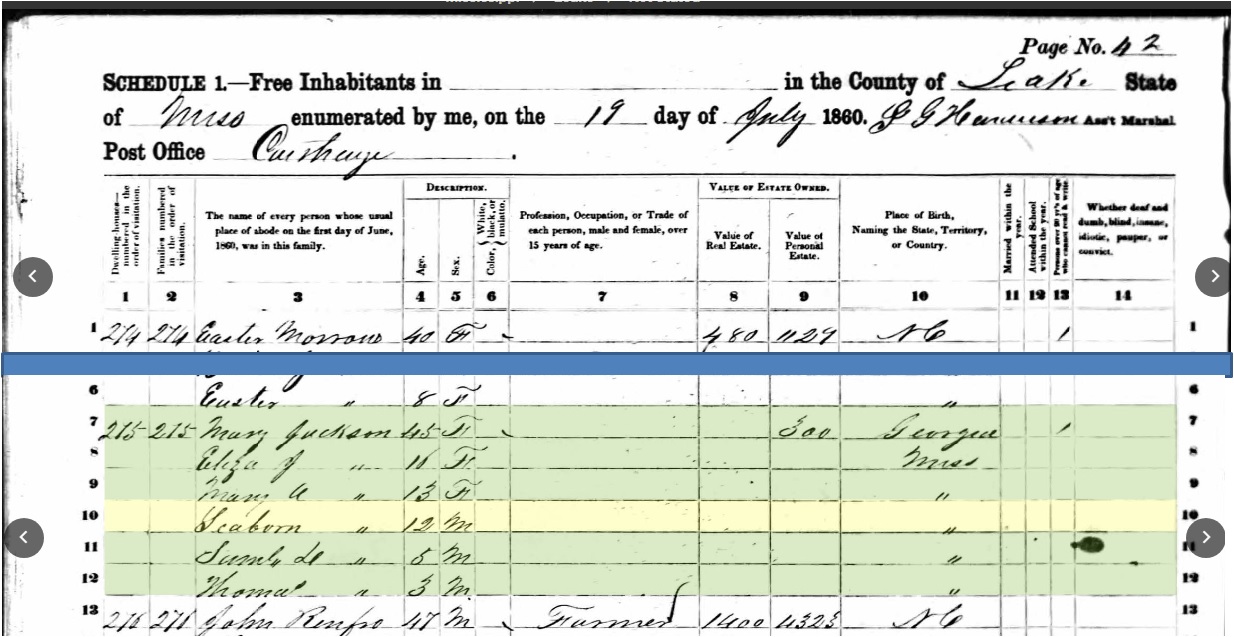 Page No. 42
SCHEDULE 1.—Free Inhabitants in in the County of Leake State
of Miss enumerated by me, on the 19 day of July 1860. G G Ass't Marshal.
Post Office Carthage .
DESCRIPTION. VALUE OF ESTATE OWNED.
Dwelling-houses—numbered in the order of visitation. Families numbered in the order of visitation. The name of every person whose usual place of abode on the first day of June, 1860, was in this family. Age. Sex. Color, {White, black, or mulatto. Profession, Occupation, or Trade of each person, male and female, over 15 years of age. Value of Real Estate. Value of Personal Estate. Place of Birth, Naming the State, Territory, or Country. Married within the year. Attended School within the year. Persons over 20 y'rs of age who cannot read & write. Whether deaf and dumb, blind, insane, idiotic, pauper, or convict.
1 2 3 4 5 6 7 8 9 10 11 12 13 14
1 274 274 Easter Morrow 40 F 480 1129 NC / 1
6 Easter " 8 F " 6
7 275 275 Mary Jackson 45 F 300 Georgia / 7
8 Eliza J " 16 F Miss 8
9 Mary A " 13 F " 9
10 Seaborn " 12 M " 10
11 " 5 M " 11
12 Thomas " 3 M " 12
13 276 276 John Renfro 47 M Farmer 1400 4323 NC 13